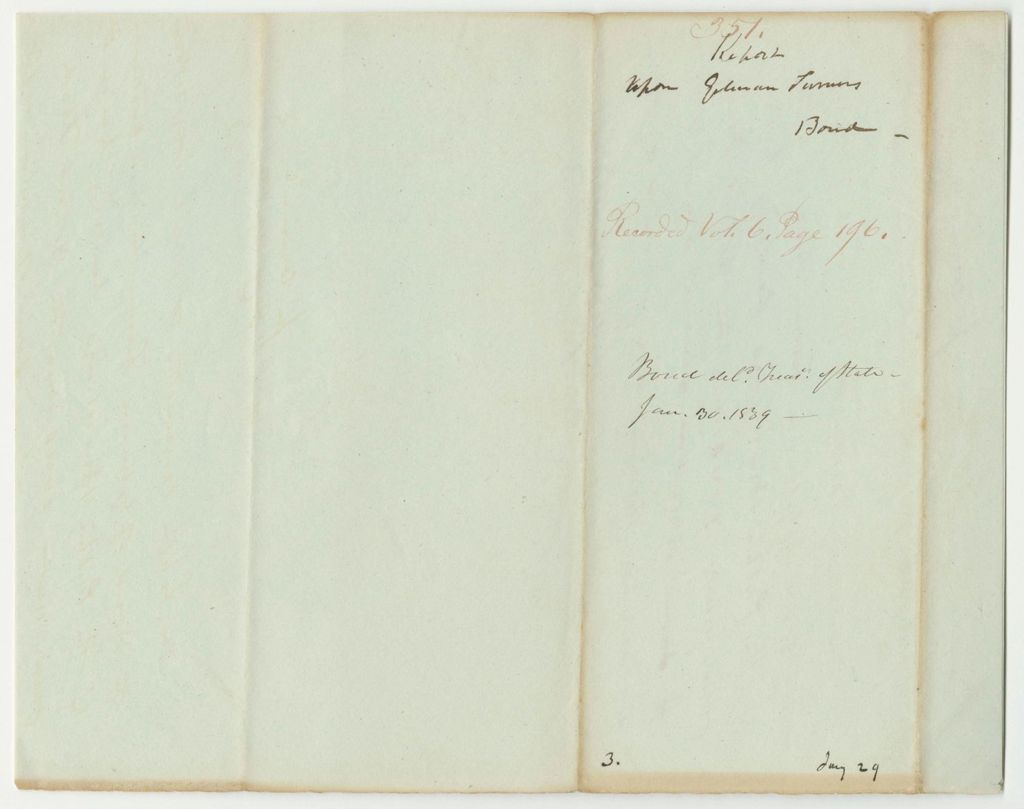 351.
Report
Upon Gilman Turners
Bond -
Recorded Vol. 6. Page 196.
Bond deld. Treasr. of State -
Jan. 30. 1839 -
3.
Jany 29